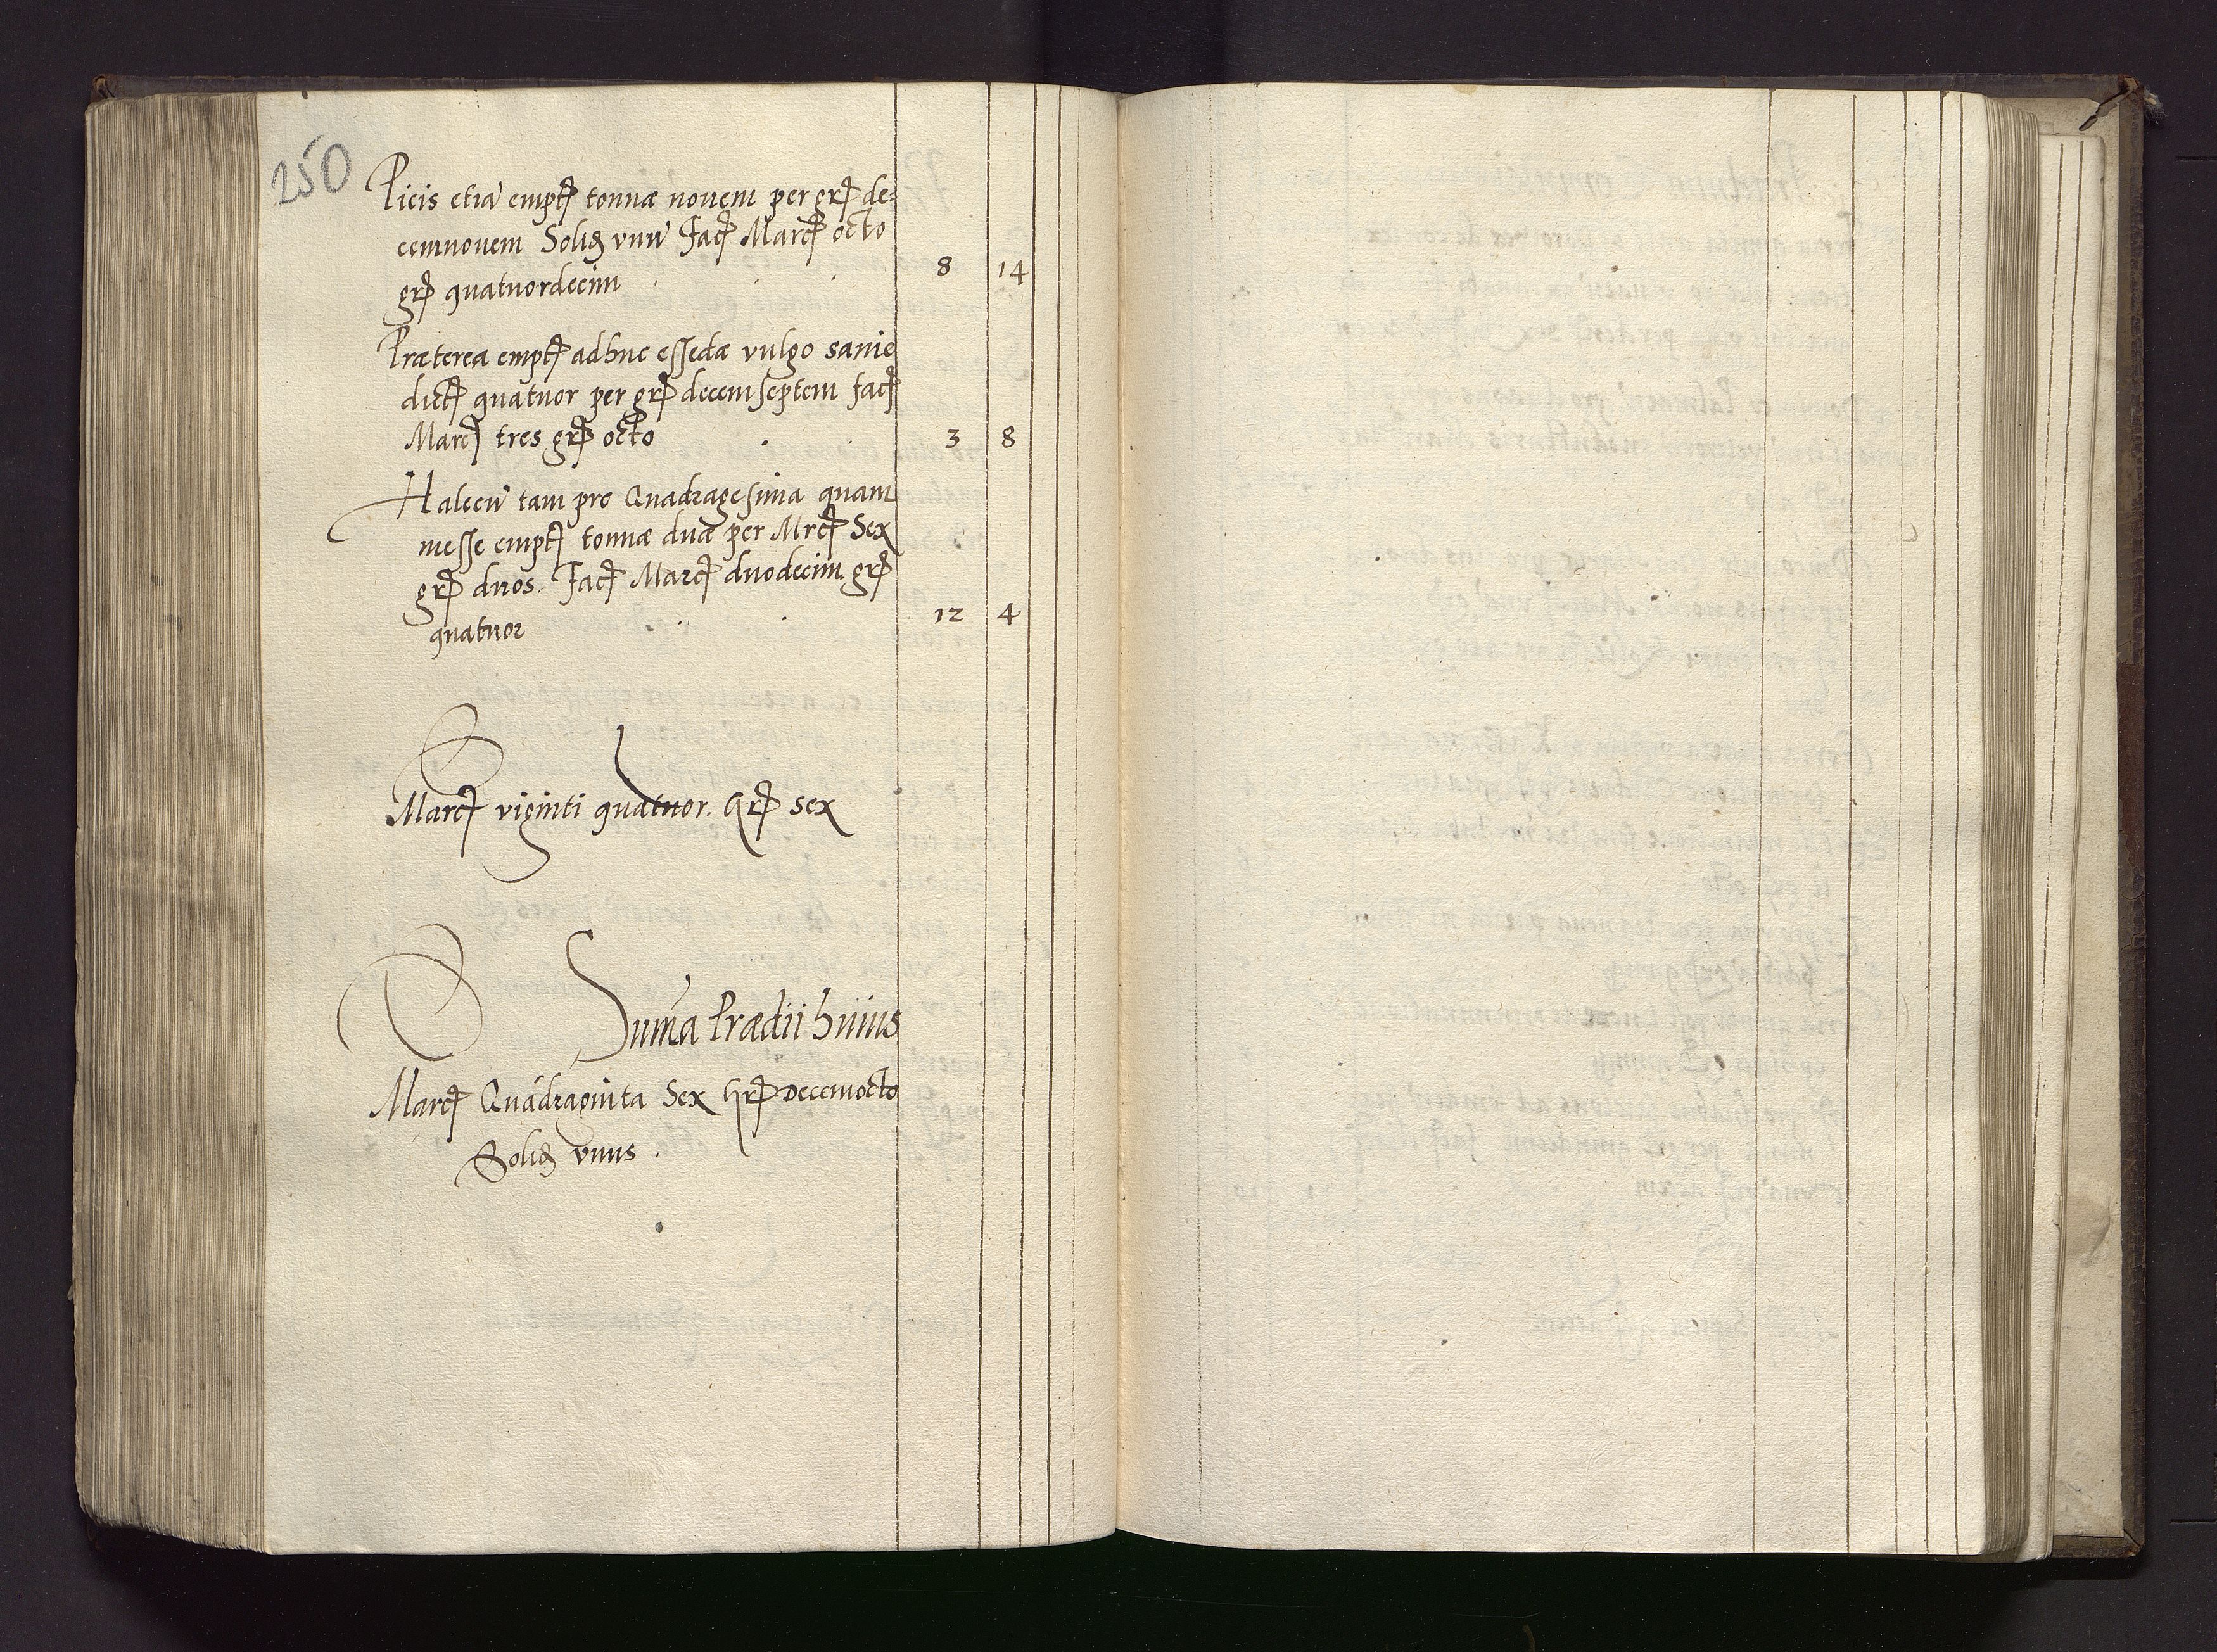 250
Picis etia empt tonnæ novem per gr de=
cemnouem Solid vnu fact Marc octo
gr quatuordecim 8 14
Præterea empt adhuc essedæ vulgo sanie
dict quatuor per gr decemseptem fact
Marc tres gr octo 3 8
Halecu tam pro Quadragesima quam
messe empt tonnæ duæ per Mrc Sex
gr duos. fact Marc duodecim gr
quatuor 12 4
Marc viginti quatuor. Gr sex
Suma Prædii huius
Marc Quadraginta Sex Gr Decemocto
Solid vnus.